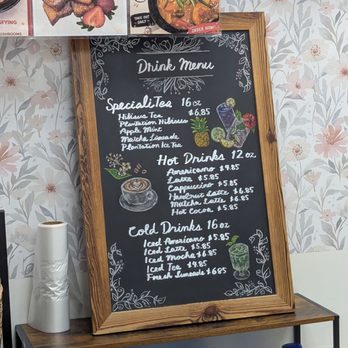 MUSHROOMS
TAKE OUT ONLY
ORDER NOW
Drink Menu
SpecialiTea 16 oz
Hibiscus Tea $6.85
Plantation Hibiscus
Apple Mint
Matcha Limeade
Plantation Ice Tea
Hot Drinks 12 oz
Americano $4.85
Latte $5.85
Cappuccino $5.85
Hazelnut Latte $6.85
Matcha Latte $6.85
Hot Cocoa $5.85
Cold Drinks 16 oz
Iced Americano $5.85
Iced Latte $5.85
Iced Mocha $6.85
Iced Tea $4.85
Fresh Limeade $6.85